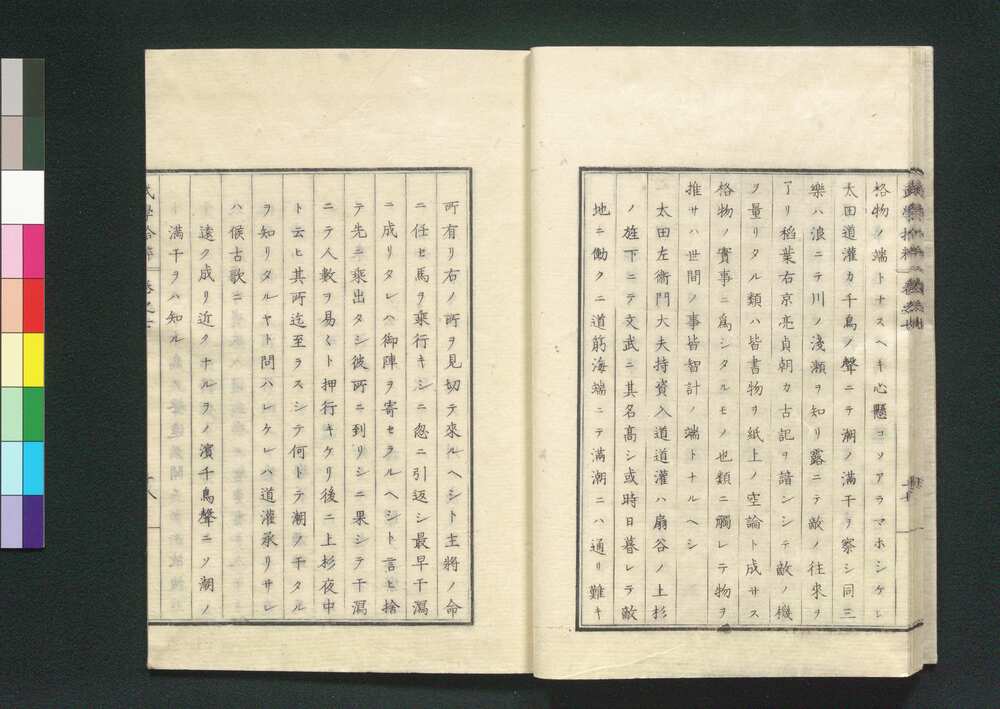 格物ノ端トナスヘキ心懸コソアラマホシケレ
大田道灌カ千鳥ノ聲ニテ潮ノ滿干ヲ察シ同三
樂ハ浪ニテ川ノ淺瀬ヲ知リ露ニテ敵ノ往來ヲ
了リ稻葉右京亮貞朝カ古記ヲ諳シテ敵ノ機
ヲ量リタル類ハ皆書物ヲ紙上ノ空論ト成サス
格物ノ實事ニ爲シタルモノ也類ニ觸レテ物ヲ
推サハ世間ノ事皆智計ノ端トナルヘシ
太田左衞門大夫持資入道道灌ハ扇谷ノ上杉
ノ旌下ニテ文武ニ其名高シ或時日暮レテ敵
地ニ働クニ道筋海端ニテ滿潮ニハ通リ難キ
所有リ右ノ所ヲ見切テ來ルヘシト主將ノ命
ニ任セ馬ヲ乘行キシニ忽ニ引返シ最早干瀉
ニ成リタレハ御陣ヲ寄セラルヘシト言ヒ捨
テ先ニ乘出タシ彼所ニ到リシニ果シテ干瀉
ニテ人數ヲ易〱ト押行キケリ後ニ上杉夜中
ト云ヒ其所迄至ラスシテ何トテ潮ノ干タル
ヲ知リタルヤト問ハレケレハ道灌承リサレ
ハ候古歌ニ
遠ク成リ近クナルヲノ濱千鳥聲ニソ潮ノ
滿干ヲハ知ル